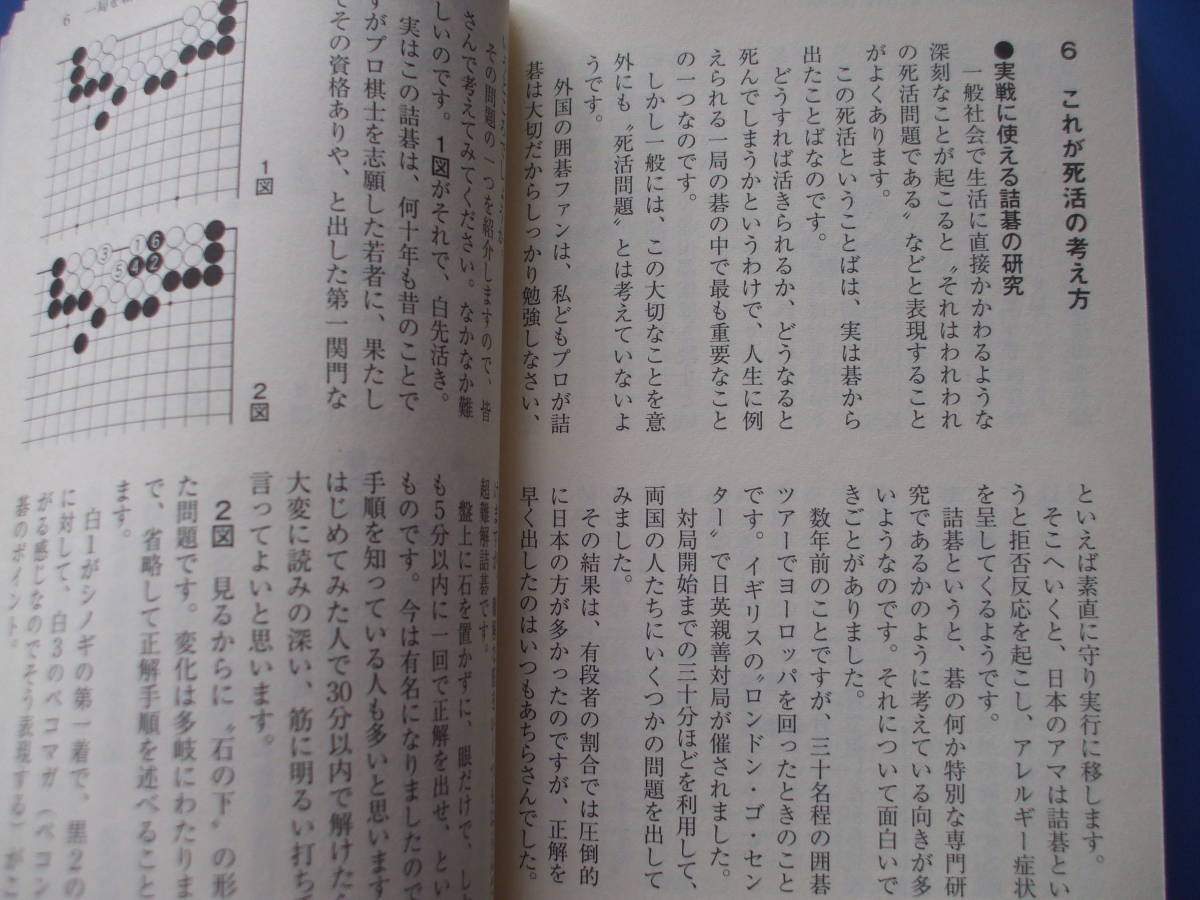 6 これが死活の考え方
●実戦に使える詰碁の研究
一般社会で生活に直接かかわるような
深刻なことが起こると〝それはわれわれ
の死活問題である〟などと表現すること
がよくあります。
この死活ということばは、実は碁から
出たことばなのです。
どうすれば活きられるか、どうなると
死んでしまうかというわけで、人生に例
えられる一局の碁の中で最も重要なこと
の一つなのです。
しかし一般には、この大切なことを意
外にも〝死活問題〟とは考えていないよ
うです。
外国の囲碁ファンは、私どもプロが詰
碁は大切だからしっかり勉強しなさい、
といえば素直に守り実行に移します。
そこへいくと、日本のアマは詰碁とい
うと拒否反応を起こし、アレルギー症状
を呈してくるようです。
詰碁というと、碁の何か特別な専門研
究であるかのように考えている向きが多
いようなのです。それについて面白いで
きごとがありました。
数年前のことですが、三十名程の囲碁
ツアーでヨーロッパを回ったときのこと
です。イギリスの〝ロンドン・ゴ・セン
ター〟で日英親善対局が催されました。
対局開始までの三十分ほどを利用して、
両国の人たちにいくつかの問題を出して
みました。
その結果は、有段者の割合では圧倒的
に日本の方が多かったのですが、正解を
早く出したのはいつもあちらさんでした。
6
その問題の一つを紹介しますので、皆
さんで考えてみてください。なかなか難
しいのです。1図がそれで、白先活き。
実はこの詰碁は、何十年も昔のことで
すがプロ棋士を志願した若者に、果たし
てその資格ありや、と出した第一関門な
1図
1
2
3
4
5
6
2図
超難解詰碁です。
盤上に石を置かずに、眼だけで、し
も5分以内に一回で正解を出せ、とい
ものです。今は有名になりましたので
手順を知っている人も多いと思います
はじめてみた人で30分以内で解けた
大変に読みの深い、筋に明るい打ち
言ってよいと思います。
2図 見るからに〝石の下〟の形
た問題です。変化は多岐にわたりま
で、省略して正解手順を述べること
ます。
白1がシノギの第一着で、黒2の
に対して、白3のベコマガ（ベコン
がる感じなのでそう表現する）が
碁のポイント。